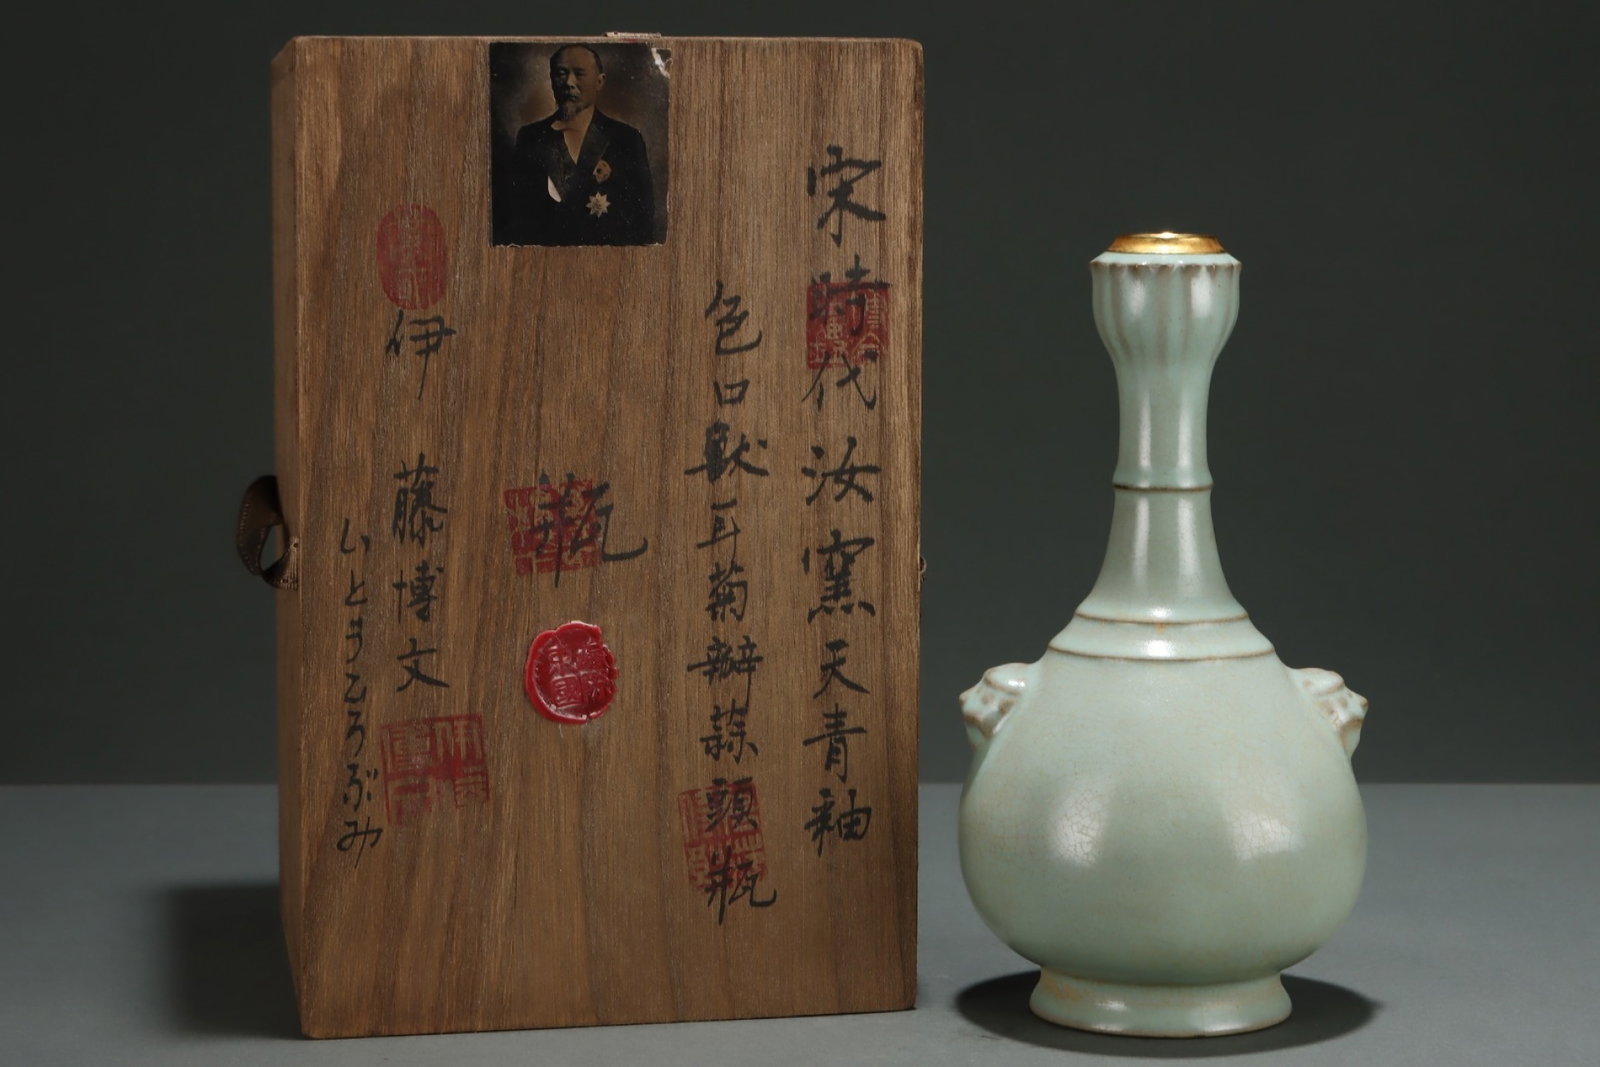 宋時代汝窯天青釉
色口獸耳菊瓣蒜頭瓶
瓶
伊藤博文
いとうひろぶみ